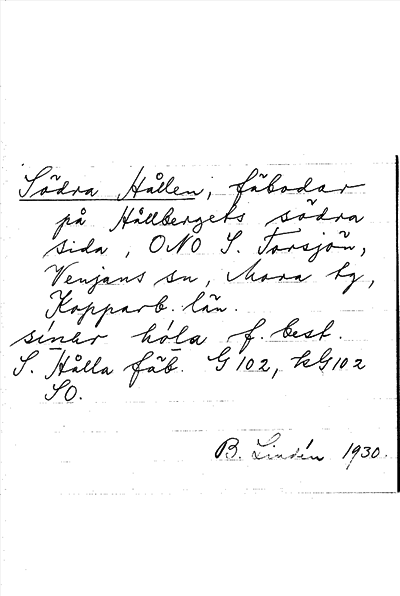 Södra Hållen, fäbodar
på Hållbergets södra
sida, ONO S. Torsjön,
Venjans sn, Mora tg,
Kopparb. län.
sínär hóla f. best.
S. Hålla fäb. G 102, kG 102
SO.
B. Lindén 1930.